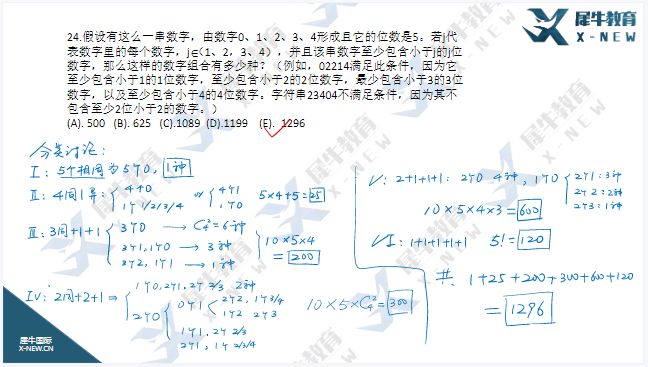 犀牛教育
X-NEW
24.假设有这么一串数字，由数字0、1、2、3、4形成且它的位数是5。若j代
表数字里的每个数字，j∈{1、2，3、4），并且该串数字至少包含小于j的j位
数字，那么这样的数字组合有多少种？（例如，02214满足此条件，因为它
至少包含小于1的1位数字，至少包含小于2的2位数字，最少包含小于3的3位
数字，以及至少包含小于4的4位数字。字符串23404不满足条件，因为其不
包含至少2位小于2的数字。）
(A). 500 (B). 625 (C).1089 (D).1199 (E). 1296
分类讨论：
I：5个相同为5个0, 1种
II：4同1异：{4个0 1个1/2/3/4 or {4个1 1个0 5×4+5=25
III：3同+1+1 {3个0 → C₄²=6种
3个1,1个0 → 3种
3个2, 1个1 → 1种
10×5×4
=200
IV：2同+2+1 ⇒ {1个0, 2个1, 2个2/3 2种
2个0 {0个1 {2个2, 1个3/4
1个2 2个3
1个1, 2个2/3
2个1, 1个2/3/4
10×5×C₄²=300
V：2+1+1+1：2个0 4种, 1个0 {2个1：3种
2个2：2种
2个3：1种
10×5×4×3=600
VI：1+1+1+1+1 5!=120
共 1+25+200+300+600+120
=1296
犀牛国际
X-NEW.CN